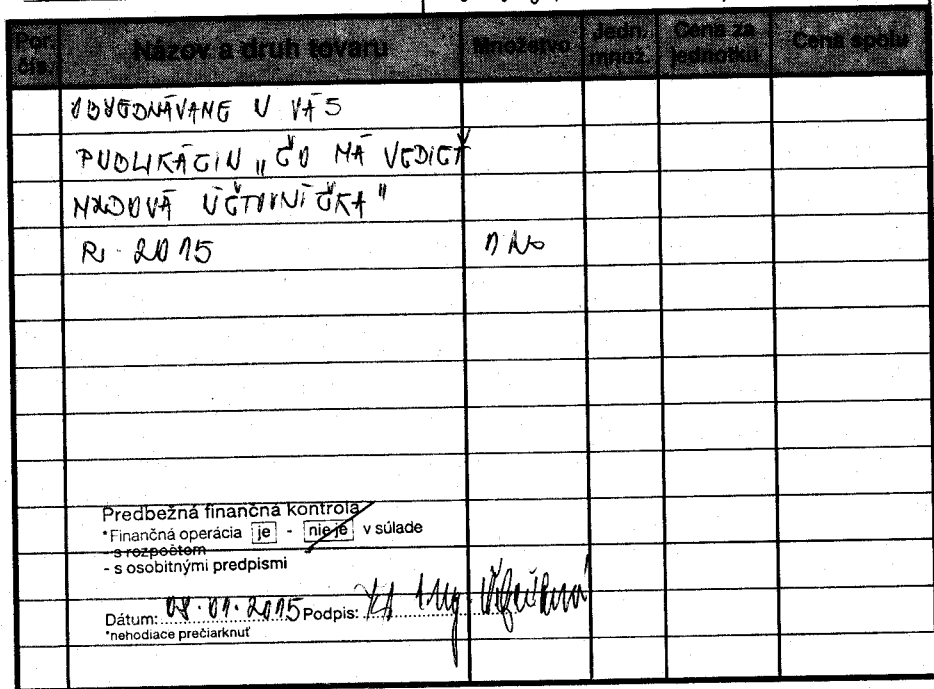 Por. čís. Názov a druh tovaru Množstvo Jedn. množ. Cena za jednotku Cena spolu
OBJEDNÁVAME U VÁS
PUBLIKÁCIU „ČO MÁ VEDIEŤ
MZDOVÁ ÚČTOVNÍČKA"
R. 2015
Predbežná finančná kontrola
*Finančná operácia je - nie je v súlade
- s rozpočtom
- s osobitnými predpismi
Dátum: 08.01.2015 Podpis: Ing.
*nehodiace prečiarknuť